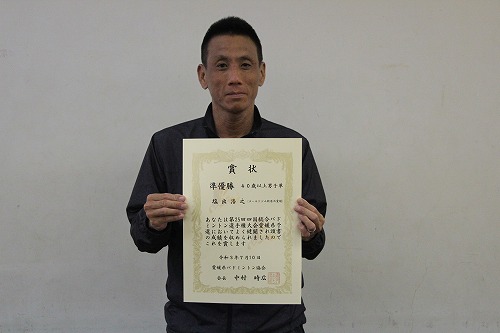 賞状
準優勝 40歳以上男子単
塩出浩之
あなたは第25回四国総合バド
ミントン選手権大会愛媛県予
選においてよく健闘され頭書
の成績を収められましたので
これを賞します
令和3年7月10日
愛媛県バドミントン協会
会長 中村時広